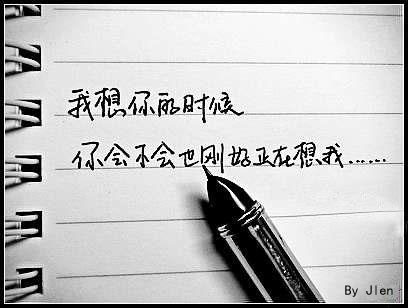 我想你的时候
你会不会也刚好正在想我……
By Jlen